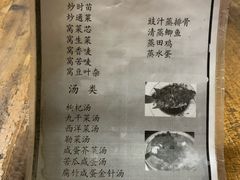 炒时苗
炒通菜
窝菜芯
窝生菜
窝香麦
窝苦麦
窝豆叶杂
豉汁蒸排骨
清蒸鲫鱼
蒸田鸡
蒸水蛋
汤类
枸杞汤
九干菜汤
西洋菜汤
勒菜汤
咸蛋芥菜汤
苦瓜咸蛋汤
腐竹咸蛋金针汤